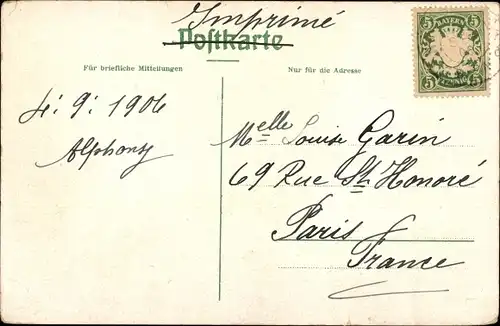 Imprimé
Postkarte
Für briefliche Mitteilungen
Nur für die Adresse
5 BAYERN 5
5 PFENNIG 5
4: 9: 1906
Alphonse
Melle Louise Garin
69 Rue St. Honoré
Paris
France